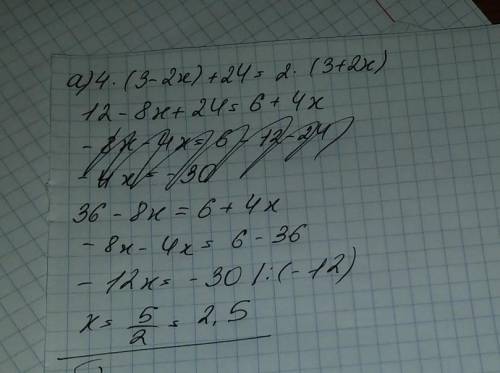 а) 4·(3-2x)+24= 2·(3+2x)
12-8x+24=6+4x
-8x-4x=6-12-24
-4x=-30
36-8x=6+4x
-8x-4x= 6-36
-12x= -30 |:(-12)
x= 5/2 = 2,5